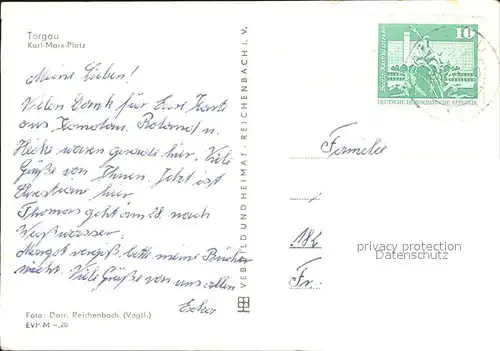 Torgau
Karl-Marx-Platz
Meine Lieben!
Vielen Dank für Eure Karte
aus Roland u.
Heike waren gerade hier. Viele
Grüße von Ihnen. Jetzt ist
Christiane hier
Thomas geht am 28. nach
Weißwasser.
Margot vergiß bitte meine Bücher
nicht. Viele Grüße von uns allen
Foto: Darr, Reichenbach (Vogtl.)
EVP M -,20
VEB BILD UND HEIMAT · REICHENBACH i. V.
10
DEUTSCHE DEMOKRATISCHE REPUBLIK
Familie
186
Fr.
privacy protection
Datenschutz